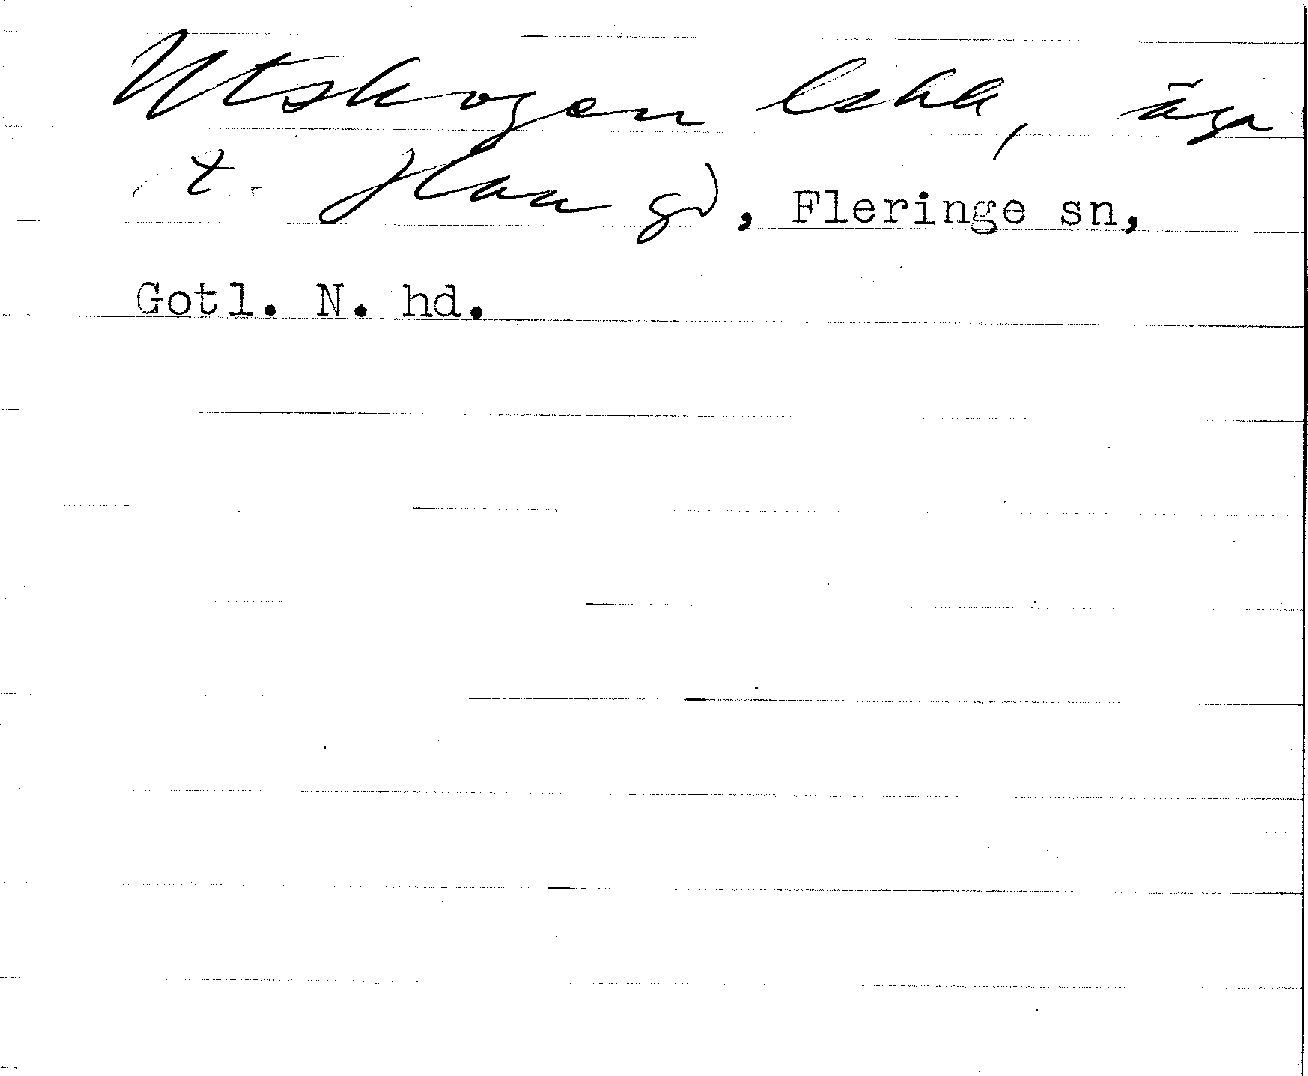 Utskogen lshl, äga
t. Hau gd, Fleringe sn,
Gotl. N. hd.